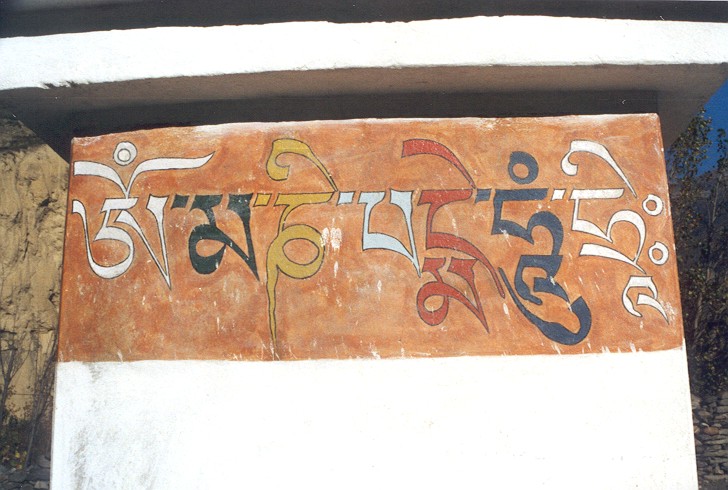 ཨོཾ་མ་ཎི་པདྨེ་ཧཱུཾ་ཧྲཱིཿ